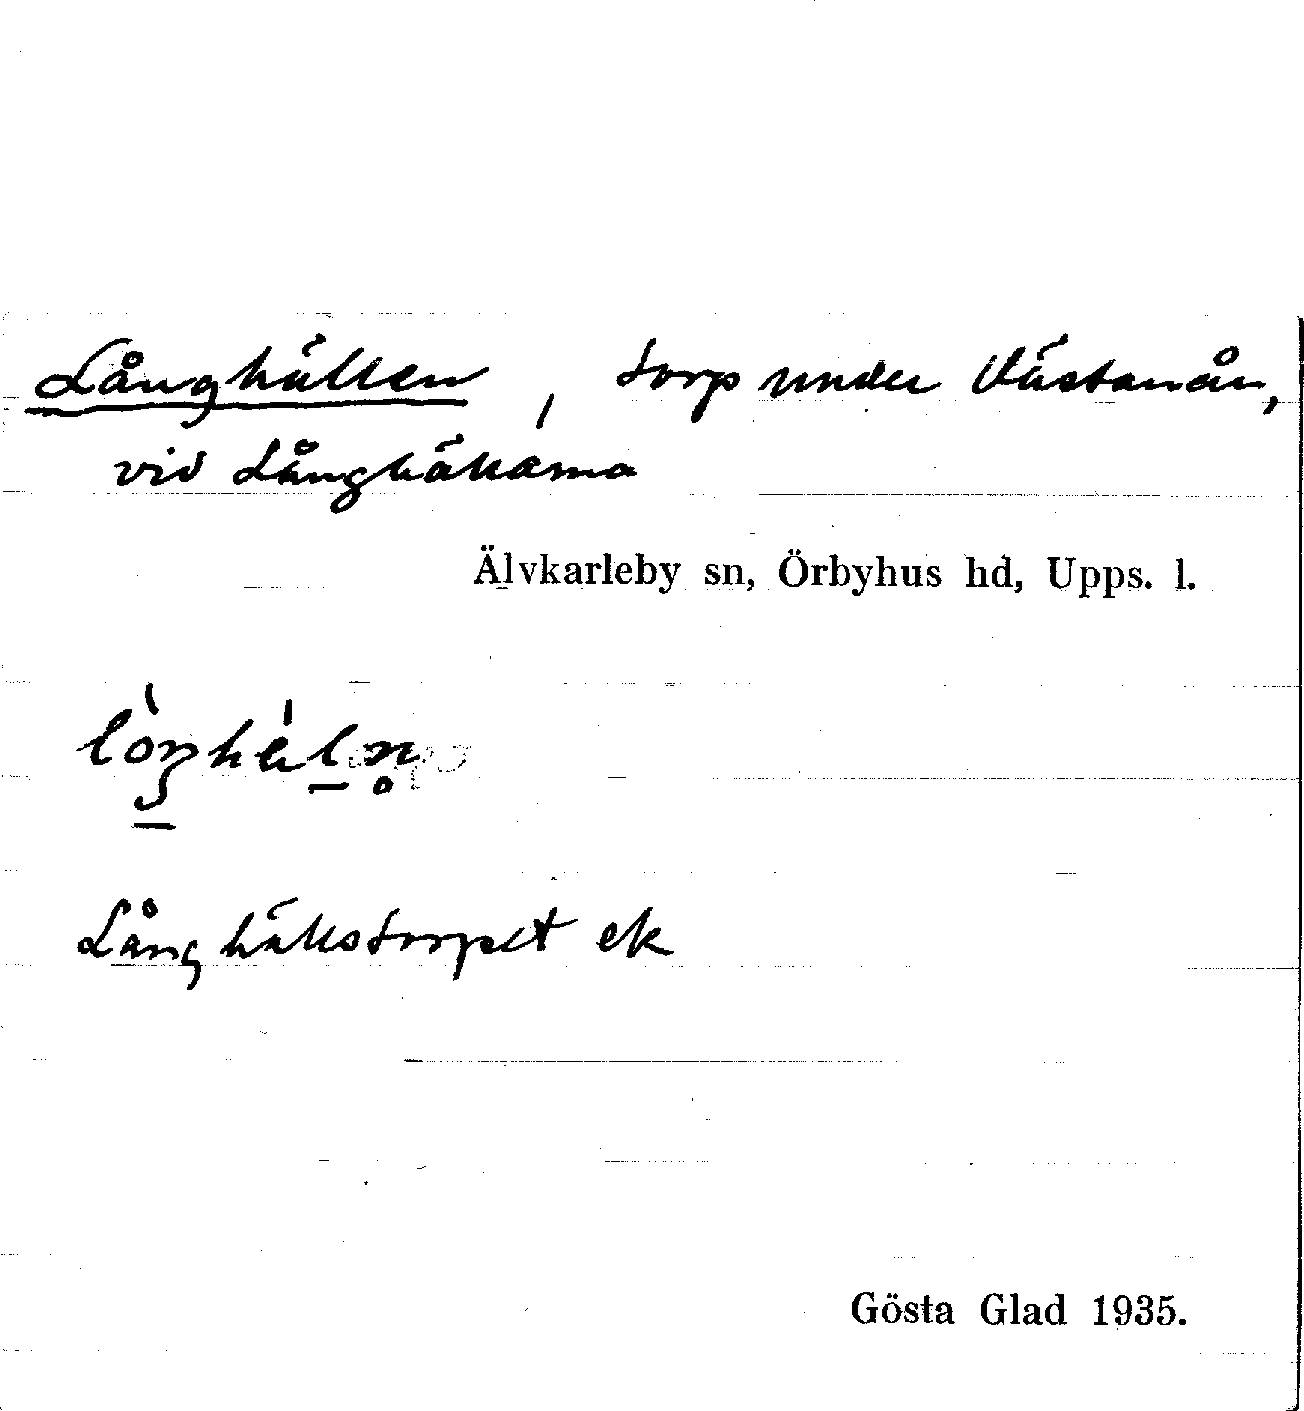 Långhällen, torp under Västanån,
vid Långhällarna
Älvkarleby sn, Örbyhus hd, Upps. l.
Långhällstorpet ek
Gösta Glad 1935.